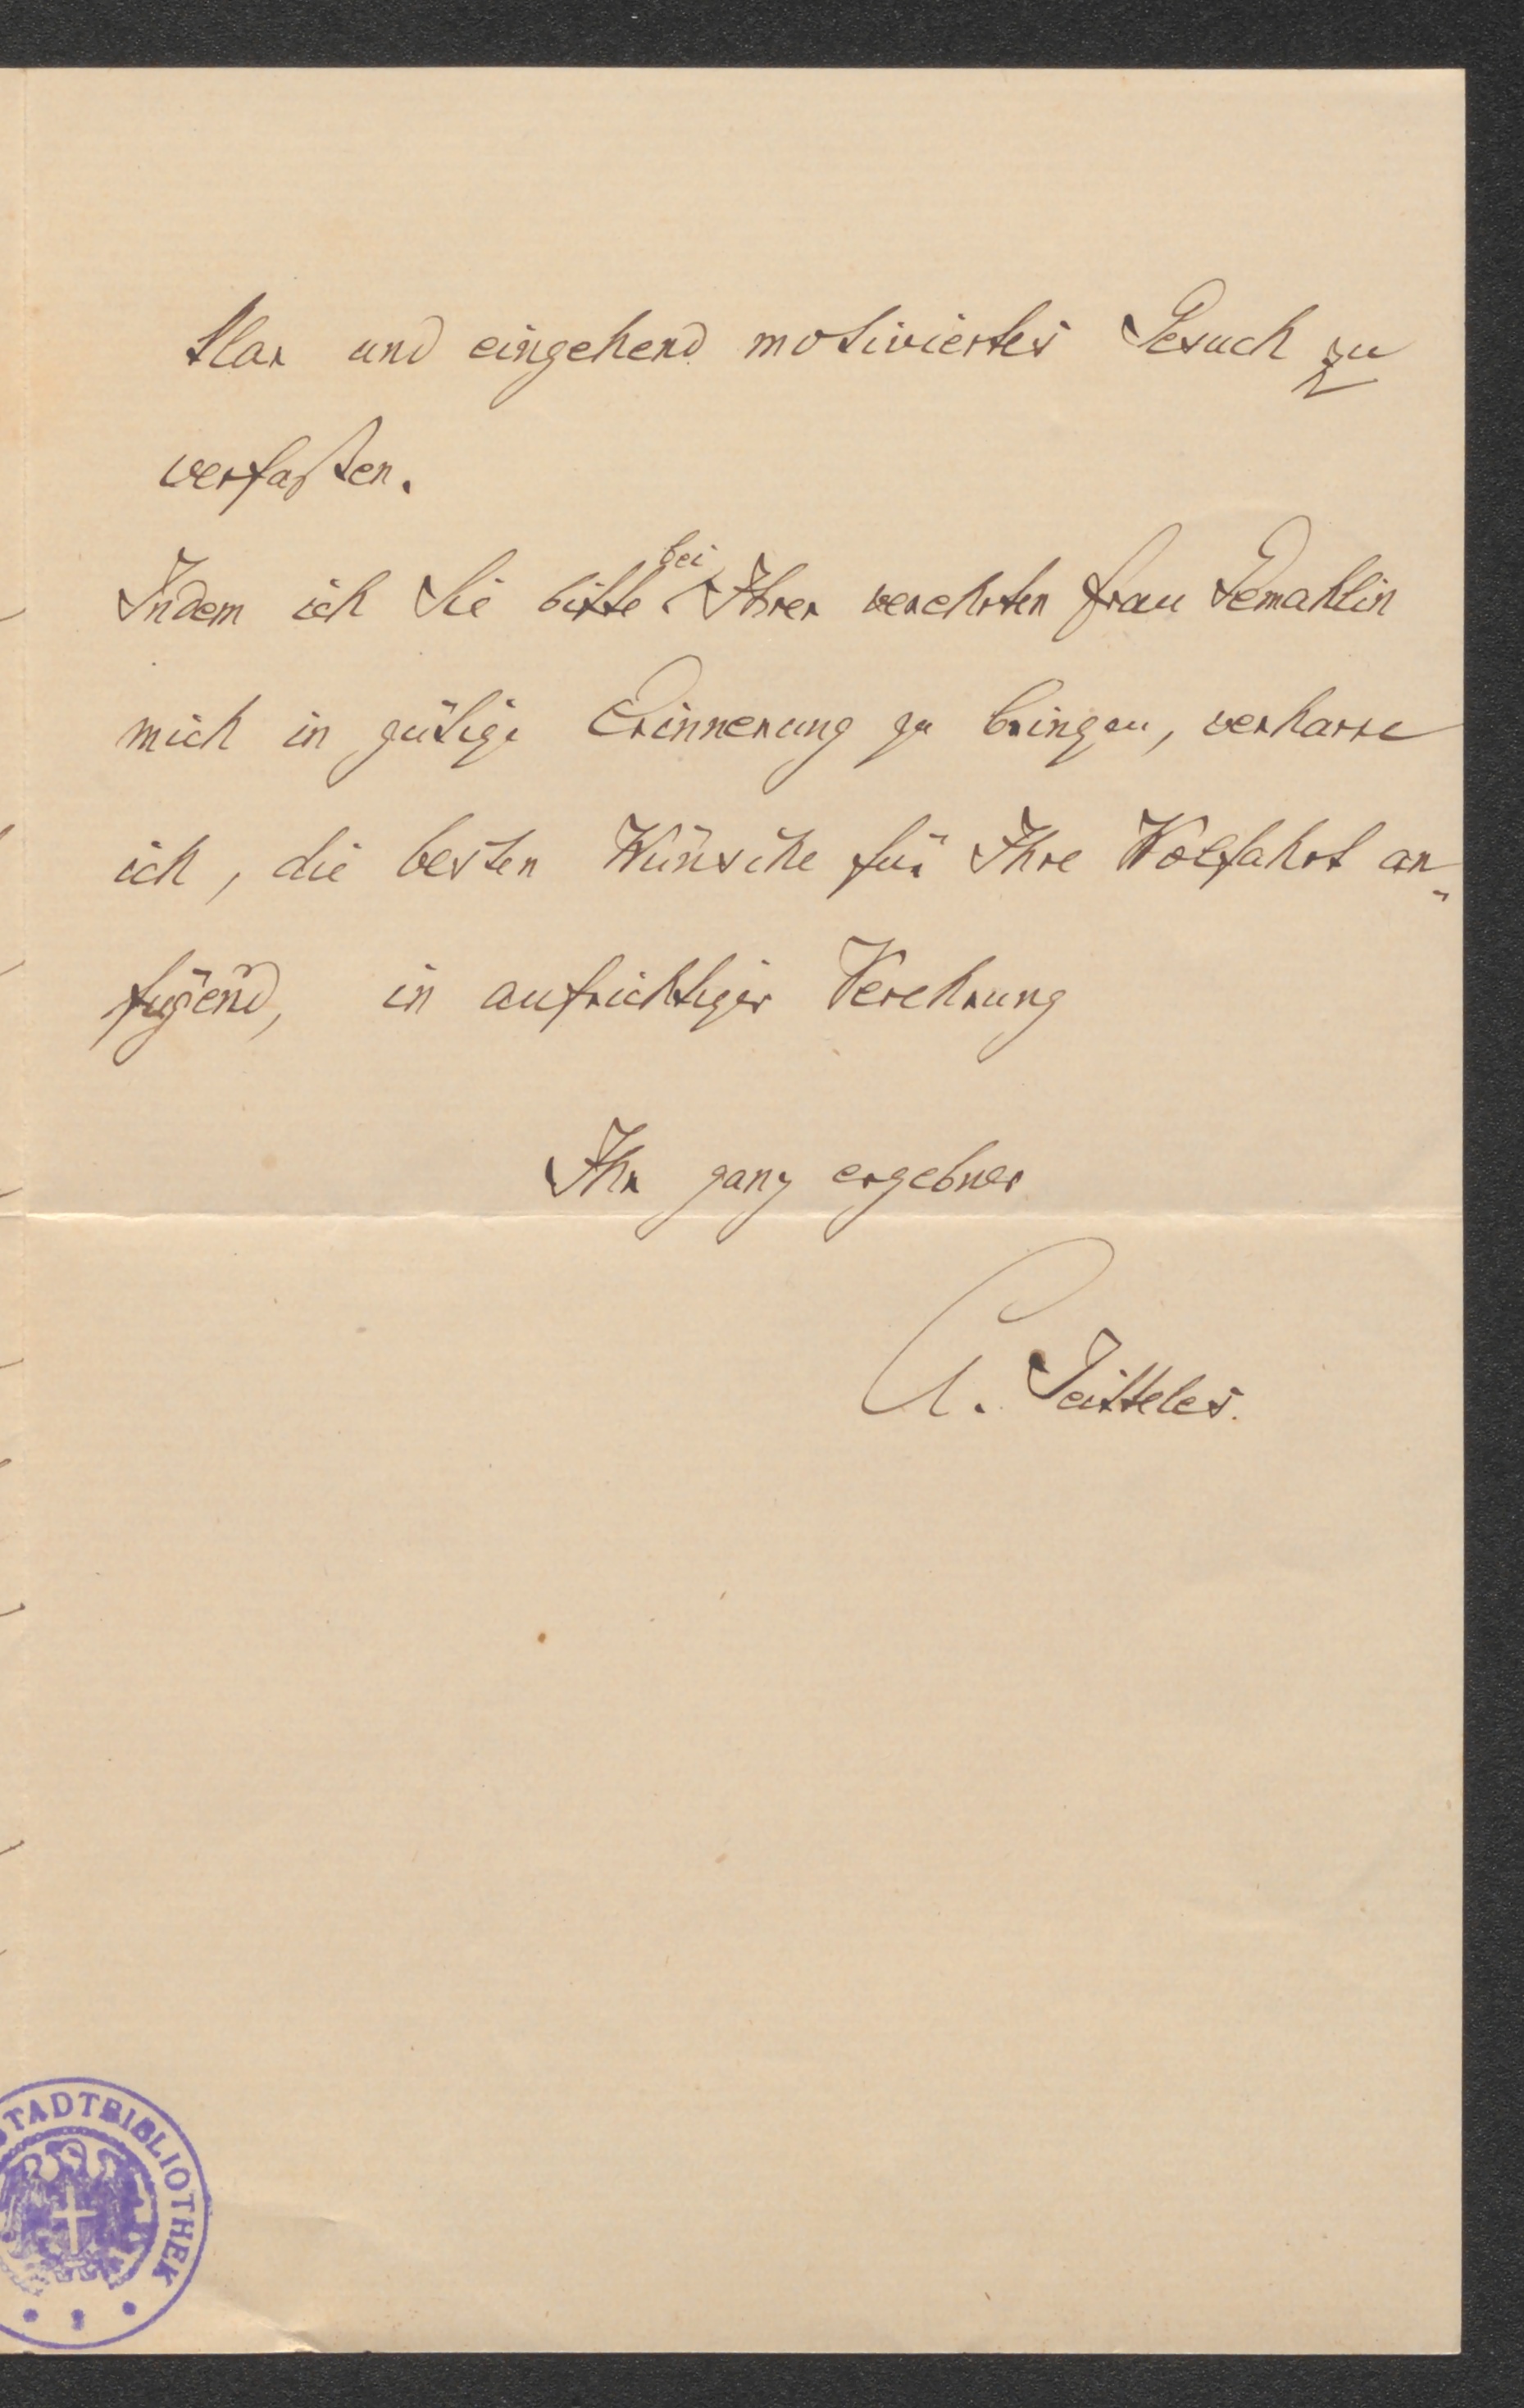 klar und eingehend motiviertes Gesuch zu
verfaßen.
Indem ich Sie bitte bei Ihrer verehrten Frau Gemahlin
mich in gütige Erinnerung zu bringen, verharre
ich, die besten Wünsche für Ihre Wolfahrt an-
fügend, in aufrichtiger Verehrung
Ihr ganz ergebner
A. Jeitteles.
STADTBIBLIOTHEK